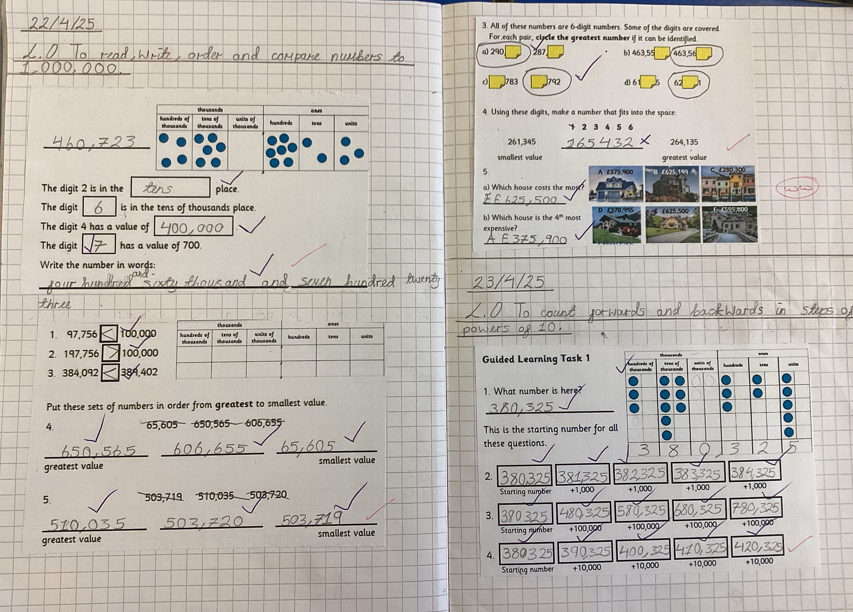 22/4/25
L.O To read, write, order and compare numbers to
1,000,000.
thousands ones
hundreds of thousands tens of thousands units of thousands hundreds tens units
460,723
The digit 2 is in the tens place.
The digit 6 is in the tens of thousands place.
The digit 4 has a value of 400,000
The digit 7 has a value of 700.
Write the number in words:
four hundred and sixty thousand and seven hundred twenty
three
thousands ones
hundreds of thousands tens of thousands units of thousands hundreds tens units
1. 97,756 < 100,000
2. 197,756 > 100,000
3. 384,092 < 389,402
Put these sets of numbers in order from greatest to smallest value.
4. 65,605 650,565 606,655
650,565 606,655 65,605
greatest value smallest value
5. 503,719 510,035 503,720
510,035 503,720 503,719
greatest value smallest value
3. All of these numbers are 6-digit numbers. Some of the digits are covered.
For each pair, circle the greatest number if it can be identified.
a) 290, 287, b) 463,55 463,56
c) 783 792 d) 61 5 62 1
4. Using these digits, make a number that fits into the space.
1 2 3 4 5 6
261,345 265432 x 264,135
smallest value greatest value
5.
a) Which house costs the most?
E £625,500
b) Which house is the 4th most
expensive?
A £375,900
A £375,900 B £625,199 C £280,300
E £625,500
23/4/25
L.O To count forwards and backwards in steps of
powers of 10.
Guided Learning Task 1
thousands ones
hundreds of thousands tens of thousands units of thousands hundreds tens units
1. What number is here?
380,325
This is the starting number for all
these questions.
3 8 0, 3 2 5
2. 380,325 381,325 382325 383,325 384,325
Starting number +1,000 +1,000 +1,000 +1,000
3. 380325 480,325 580,325 680,325 780,325
Starting number +100,000 +100,000 +100,000 +100,000
4. 380325 390,325 400,325 410,325 420,325
Starting number +10,000 +10,000 +10,000 +10,000